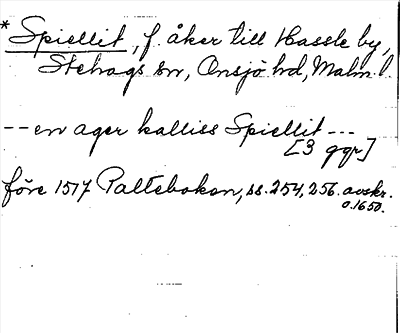 * Spiellit, f. åker till Hassle by,
Stehags sn, Onsjö hd, Malm. l.
-- en ager kalliss Spiellit ---
[3 ggr]
före 1517 Paltebokon, ss. 254, 256. avskr.
o. 1650.